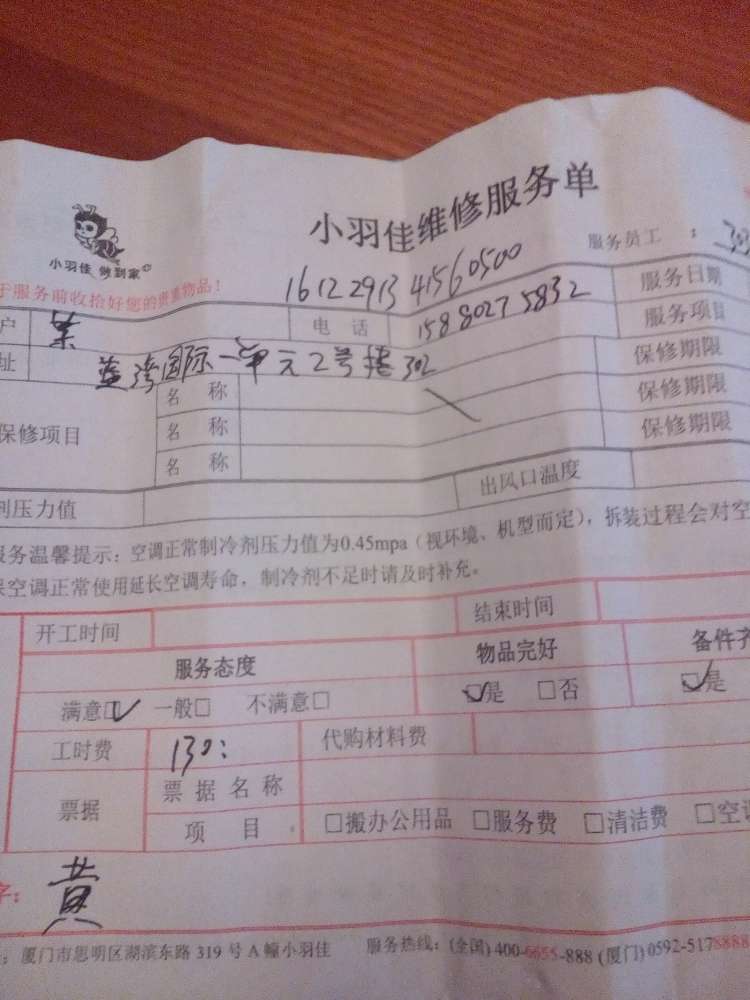 小羽佳维修服务单
小羽佳 做到家
服务员工 : 303
于服务前收拾好您的贵重物品！
1612291341560500
服务日期
户 电 话 15880275832 服务项目
址 蓝湾国际一单元2号楼302 保修期限
保修项目 名 称 保修期限
名 称 保修期限
名 称
剂压力值 出风口温度
服务温馨提示：空调正常制冷剂压力值为0.45mpa（视环境、机型而定），拆装过程会对空
保空调正常使用延长空调寿命，制冷剂不足时请及时补充。
开工时间 结束时间
服务态度 物品完好 备件齐
满意☑ 一般□ 不满意□ ☑是 □否 ☑是
工时费 130: 代购材料费
票据 票据名称
项 目 □搬办公用品 □服务费 □清洁费 □空调
字： 黄
：厦门市思明区湖滨东路 319 号 A 幢小羽佳 服务热线：(全国) 400-6655-888 (厦门) 0592-5178888